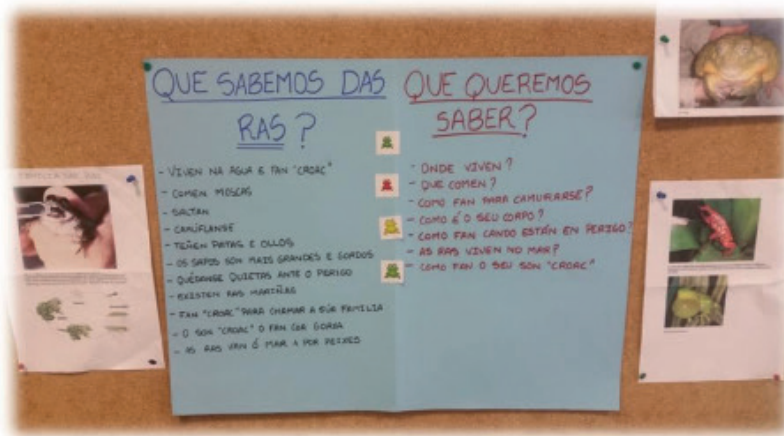 QUE SABEMOS DAS
RAS?
- VIVEN NA AGUA E FAN "CROAC"
- COMEN MOSCAS
- SALTAN
- CAMÚFLANSE
- TEÑEN PATAS E OLLOS
- OS SAPOS SON MAIS GRANDES E GORDOS
- QUÉDANSE QUIETAS ANTE O PERIGO
- EXISTEN RAS MARIÑAS
- FAN "CROAC" PARA CHAMAR A SÚA FAMILIA
- O SON "CROAC" O FAN COA GORXA
- AS RAS VAN Ó MAR A POR PEIXES
QUE QUEREMOS
SABER?
- ONDE VIVEN?
- QUE COMEN?
- COMO FAN PARA CAMUFLARSE?
- COMO É O SEU CORPO?
- COMO FAN CANDO ESTÁN EN PERIGO?
- AS RAS VIVEN NO MAR?
- COMO FAN O SEU SON "CROAC"